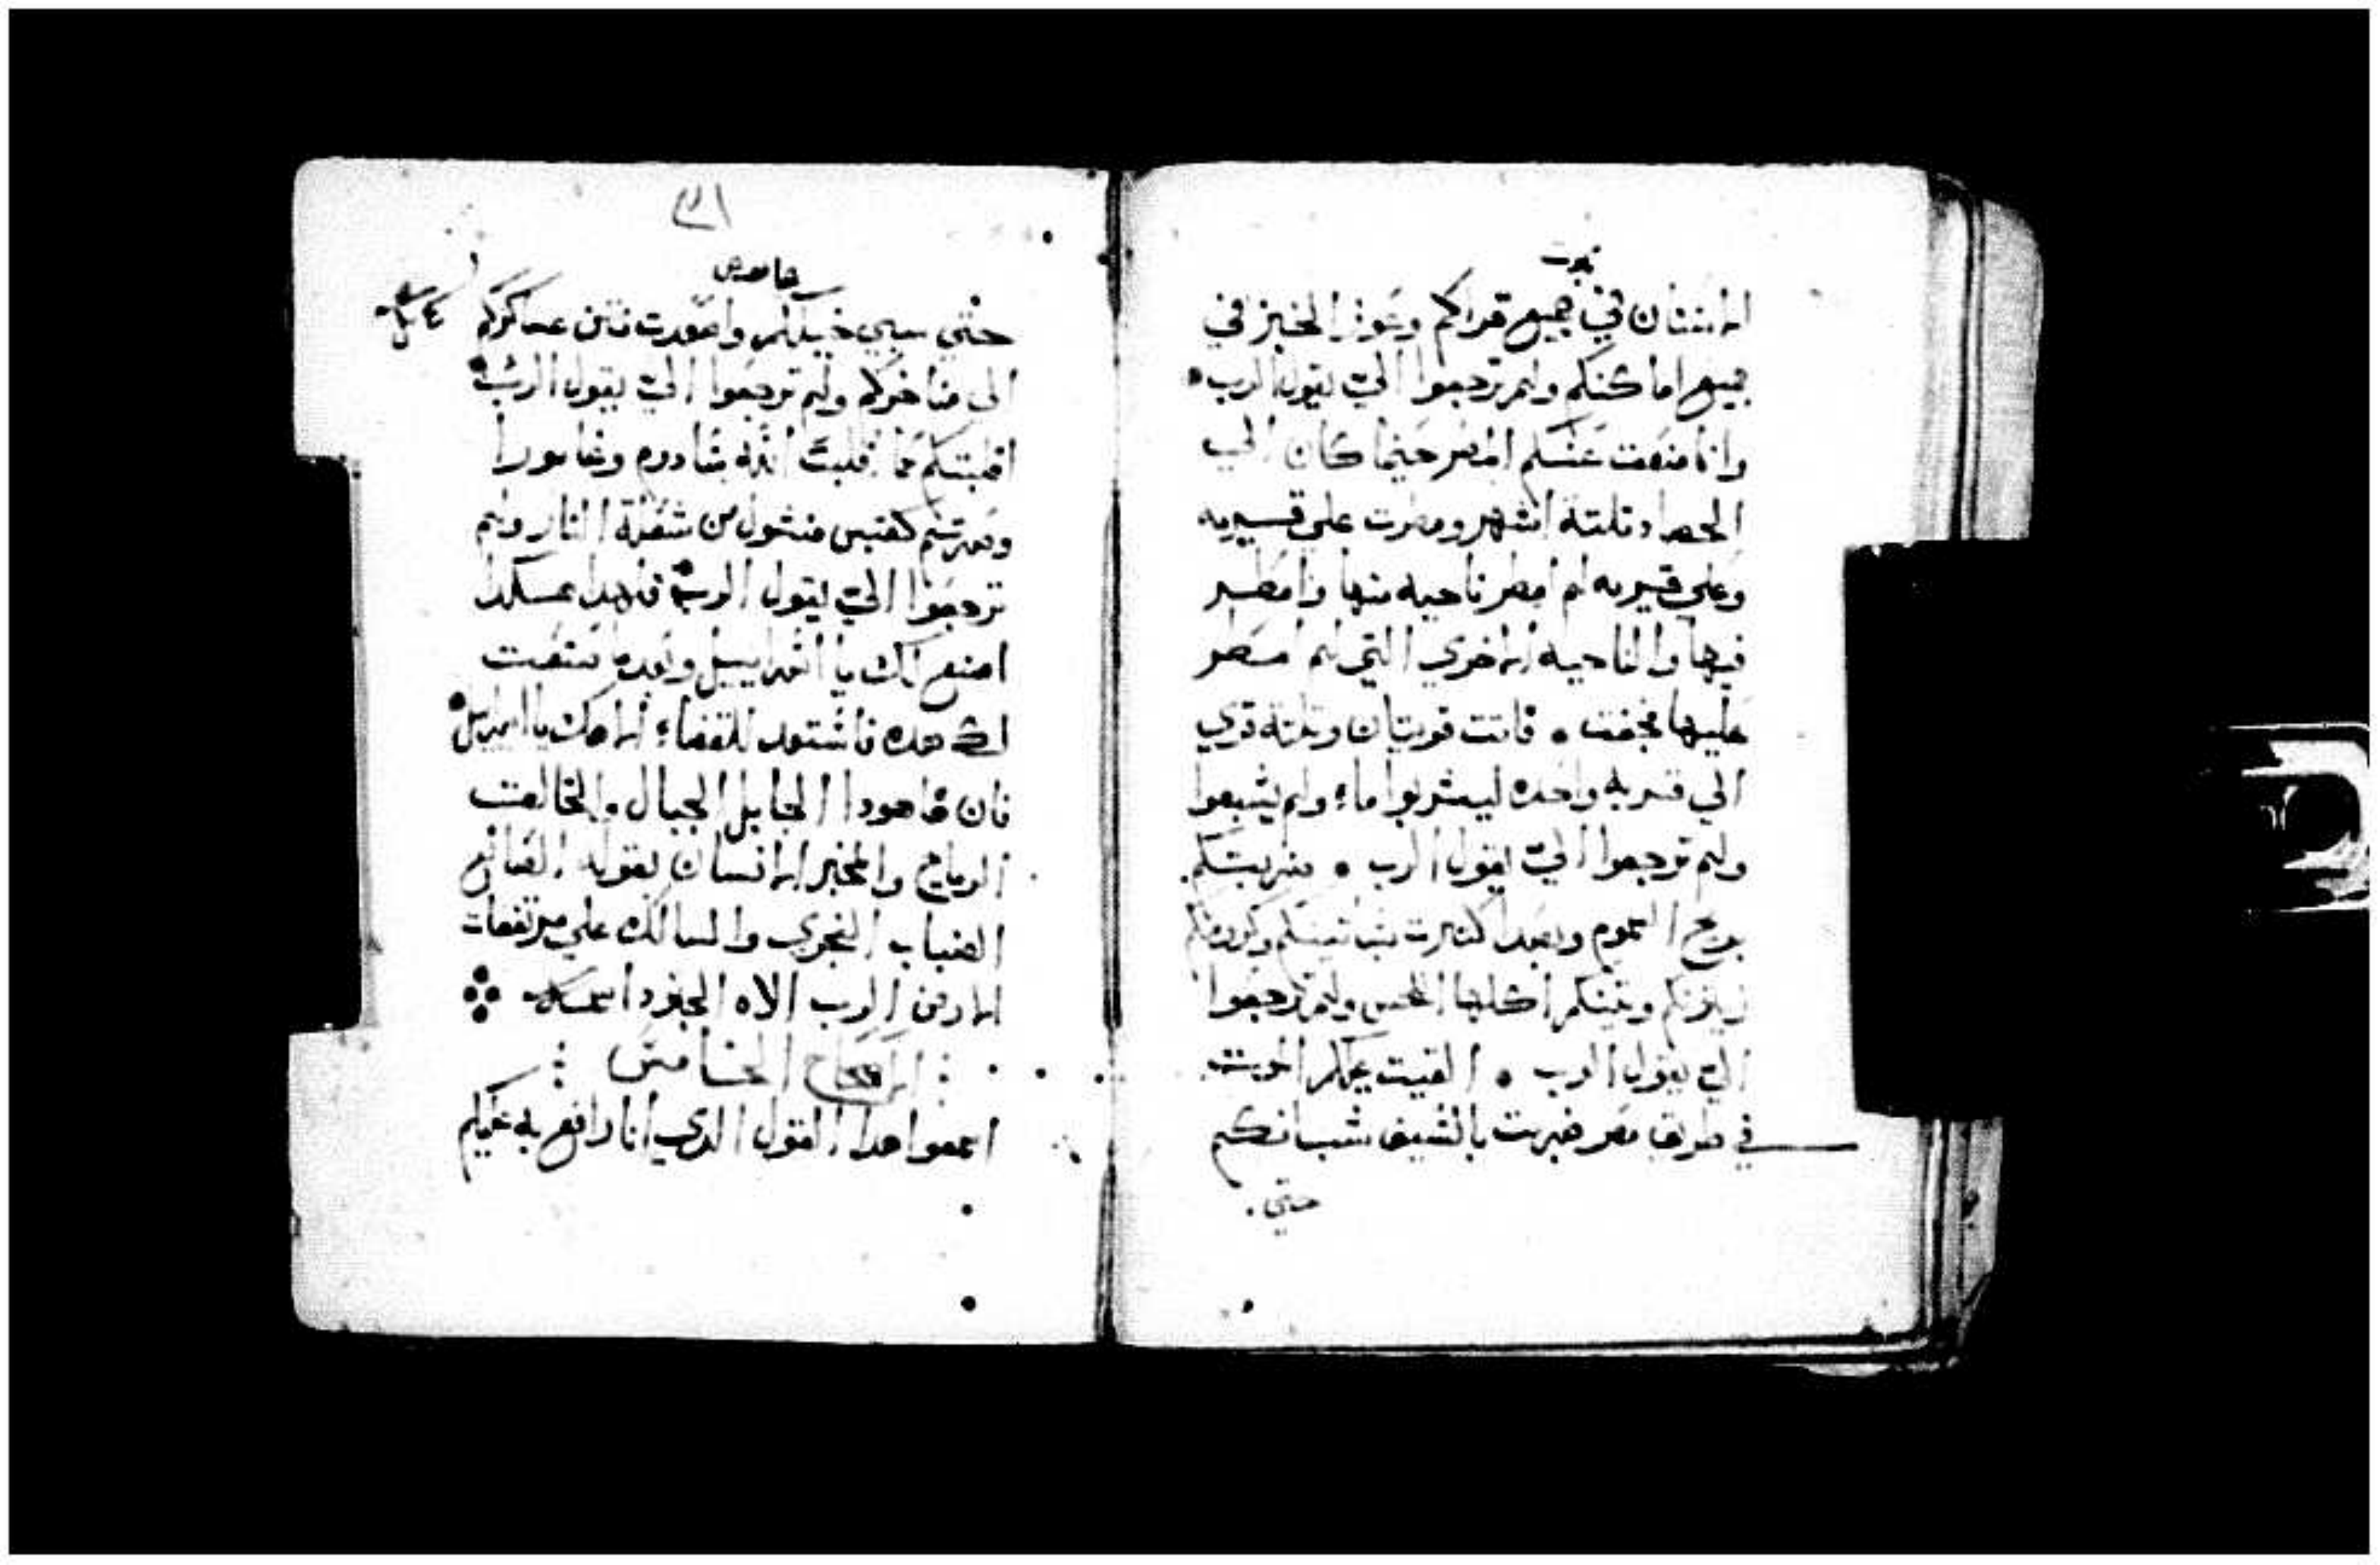 نبوت
الاسنان في جميع قراكم وعوز الخبز في
جميع اماكنكم ولم ترجعوا اليّ يقول الرب
وانا منعت عنكم المطر حينما كان الي
الحصاد تلتة اشهر ومطرت علي قريه
وعلي قريه لم امطر ناحيه منها وامطر
فيها والناحيه الاخري التي لم امطر
عليها فجفت • فاتت قريتان وتلتة قري
الي قريه واحده ليشربوا ماء ولم يشبعوا
ولم ترجعوا اليّ يقول الرب • ضربتكم
بريح السموم وبعدا كثرت بساتينكم وكرومكم
زيتونكم وتينكم اكلها الحس ولم ترجعوا
اليّ يقول الرب • القيت عليكم الموت
في طريق مصر ضربت بالسيف شبانكم
حتي
٣١
عاموص
حتي سبي خيلكم واصعدت نتن عساكركم
الي مناخركم ولم ترجعوا اليّ يقول الرب
اقلبتكم كما قلبت الله سادوم وغامورا
وصرتم كقبس منشول من شعلة النار ولم
ترجعوا اليّ يقول الرب فلهدا هكدا
اصنع لك يا اسراييل وبعدما صنعت
لك هده فاستعد للقاء الاهك يا اسراييل
فان هاهودا الجابل الجبال والخالق
الرياح والمخبر الانسان بقوله الصانع
الضباب الفجري والسالك علي مرتفعات
الارض الرب الاه الجنود اسمه
الاصحاح الخامس
اسمعوا هدا القول الدي انا رافع به عليكم